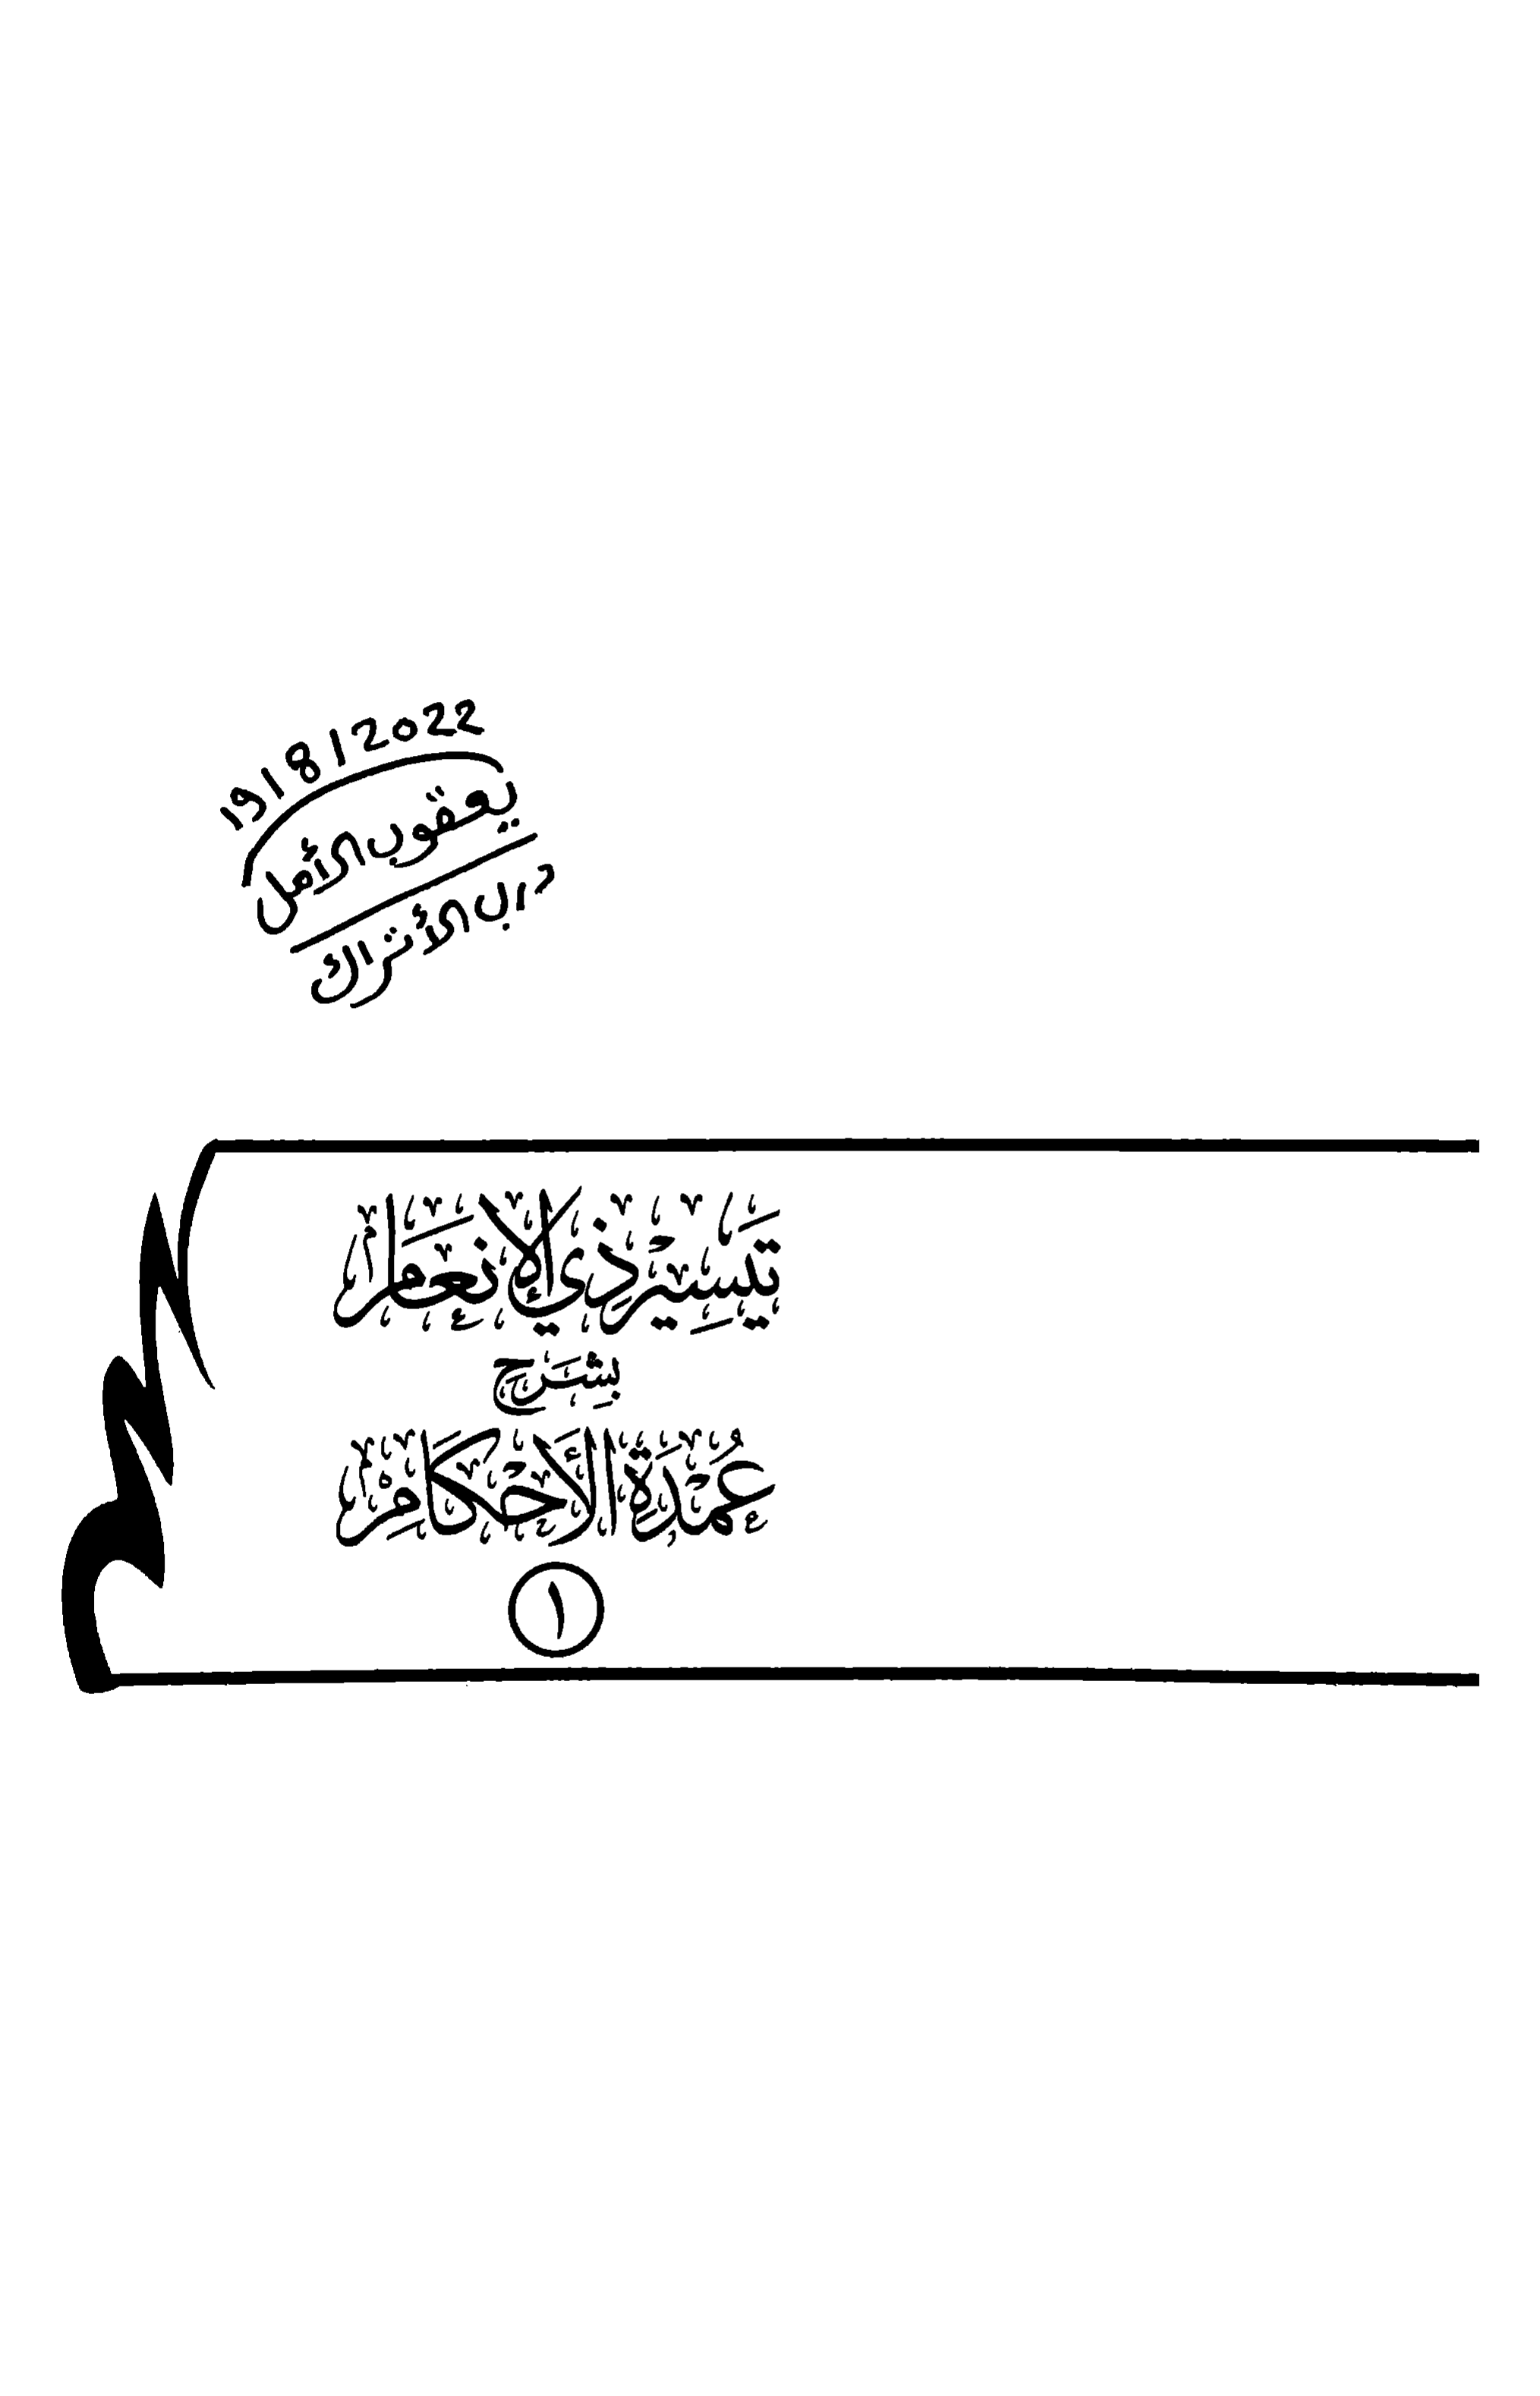 19/8/2022
يعقوب
درب الأتراك
تيسير ذي الإنعام
بشرح
عمدة الأحكام
١